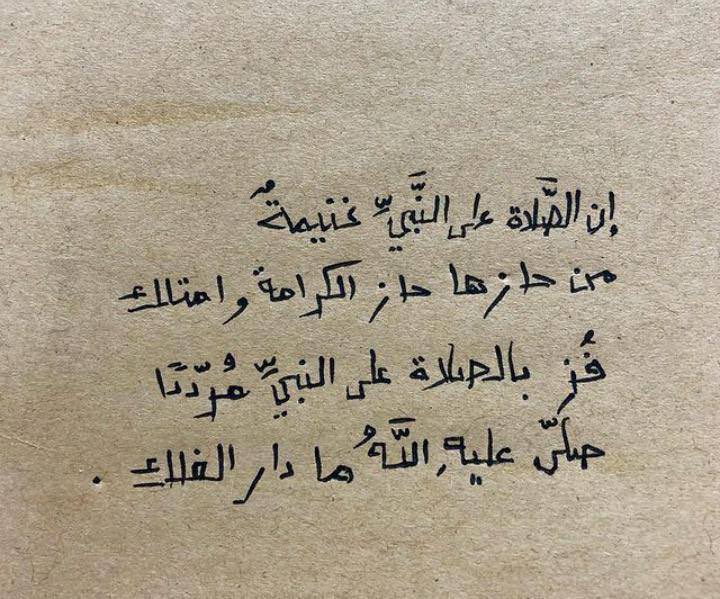 إن الصَّلاة على النَّبيِّ غنيمةٌ
من حازها حاز الكرامةَ وامتلك
فُز بالصلاة على النبيِّ مُردّدًا
صلّى عليهِ اللَّهُ ما دار الفلك .